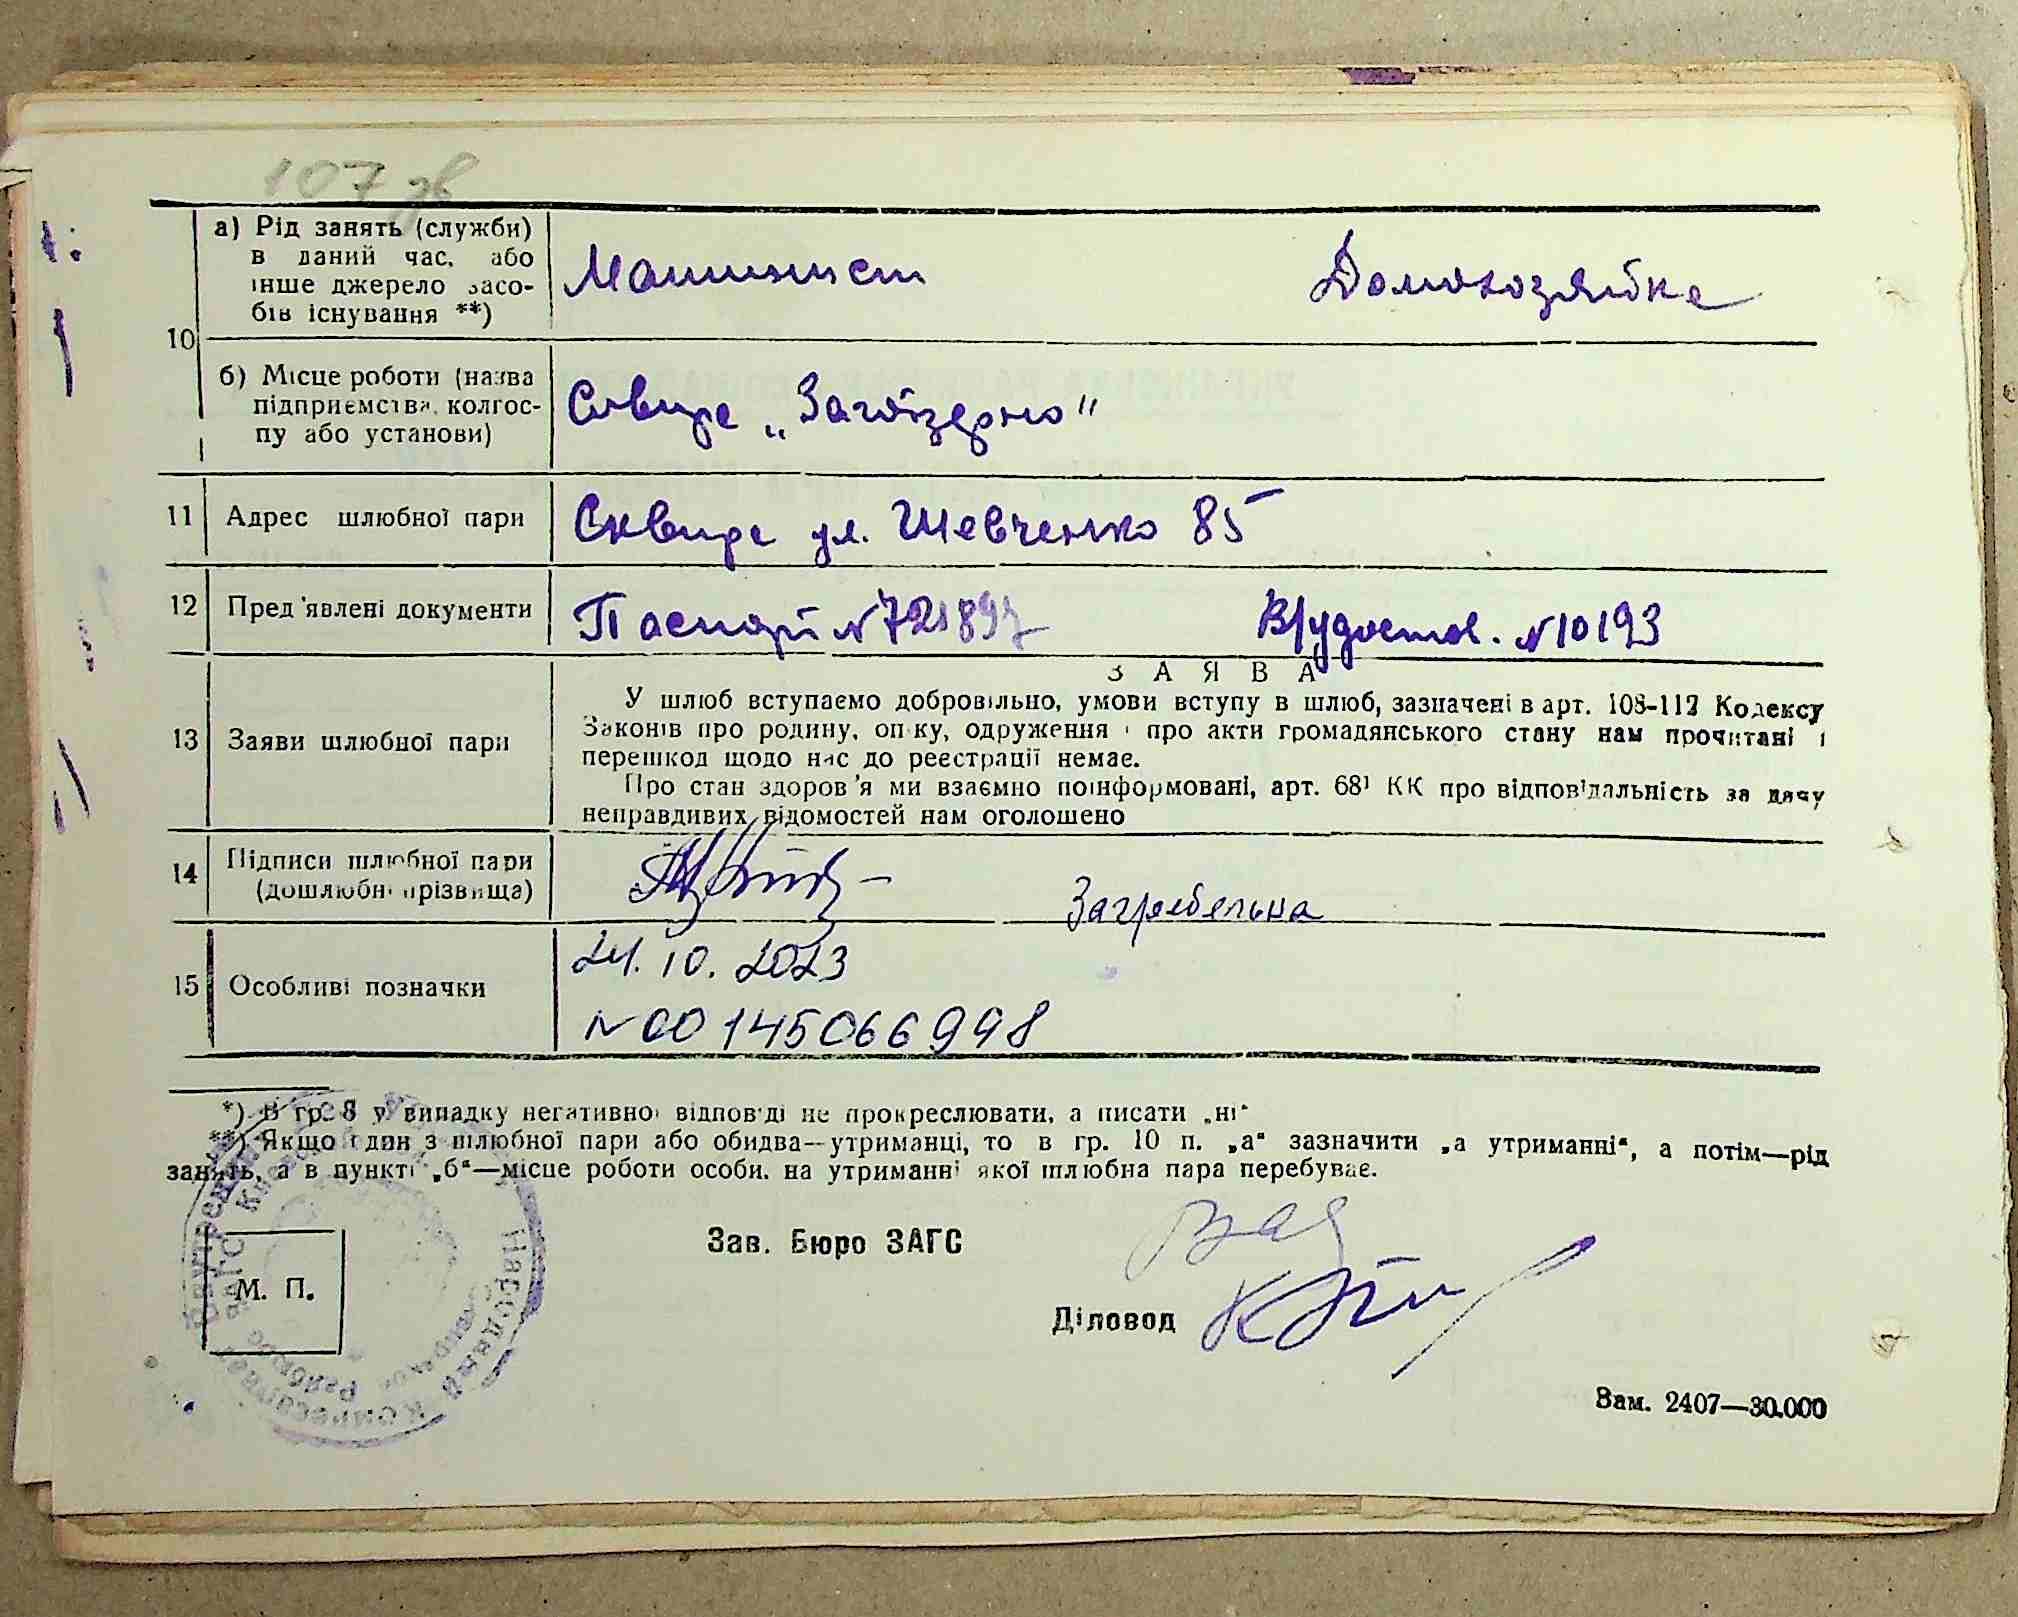 107 зв
а) Рід занять (служби)
в даний час, або
інше джерело засо-
бів існування **)
Машинист
Домохозяйка
10
б) Місце роботи (назва
підприємства, колгос-
пу або установи)
Сквира „Заготзерно"
11 Адрес шлюбної пари
Сквира ул. Шевченко 85
12 Пред'явлені документи
Паспорт №721897
В/удостов. №10193
ЗАЯВА
13 Заяви шлюбної пари
У шлюб вступаємо добровільно, умови вступу в шлюб, зазначені в арт. 108-112 Кодексу
Законів про родину, опіку, одруження і про акти громадянського стану нам прочитані і
перешкод щодо нас до реєстрації немає.
Про стан здоров'я ми взаємно поінформовані, арт. 68¹ КК про відповідальність за дачу
неправдивих відомостей нам оголошено
14 Підписи шлюбної пари
(дошлюбні прізвища)
Загребельна
15 Особливі позначки
24.10.2023
№00145066998
*) В гр. 8 у випадку негативної відповіді не прокреслювати, а писати „ні"
**) Якщо один з шлюбної пари або обидва—утриманці, то в гр. 10 п. „а" зазначити „а утриманні", а потім—рід
занять, а в пункті „б"—місце роботи особи, на утриманні якої шлюбна пара перебуває.
Зав. Бюро ЗАГС
М. П.
Діловод
Народний Комісаріат
Зам. 2407—30.000